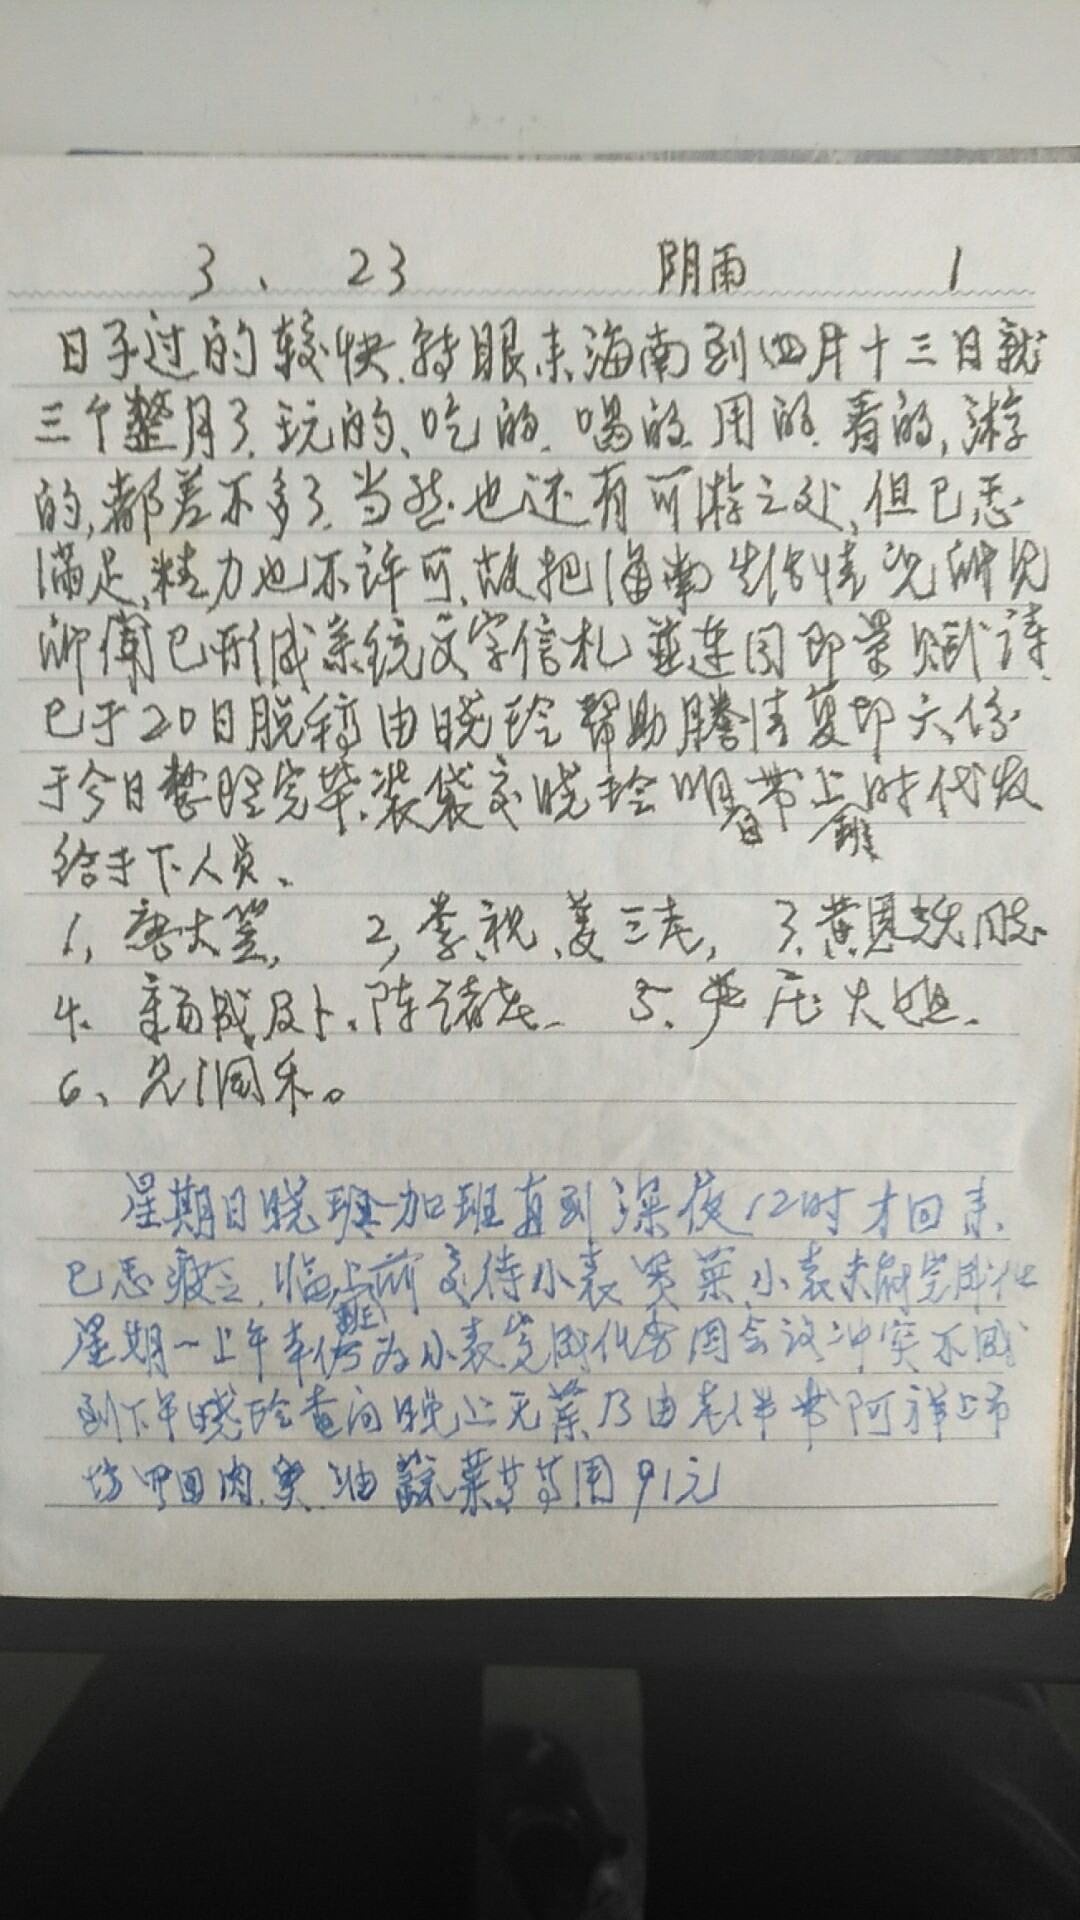 3、23 阴雨 1
日子过的较快.转眼来海南到四月十三日就
三个整月了.玩的、吃的.喝的.用的.看的,游
的,都差不多了.当然也还有可游之处,但已感
满足,精力也不许可.故把海南生活情况所见
所闻已形成系统文字信札并连同即景赋诗.
已于20日脱稿由晓玲帮助腾清复印六份
于今日整理完毕,装袋交晓玲明日带上班时代发
给于下人员、
1, 唐大 2, 李、祝、姜三老, 3、黄恩 同志
4、 成及卜、陈诸老 5、严 大姐.
6、 润禾。
星期日晓玲加班直到深夜12时才回来.
已感疲乏.临上班前交待小袁买菜,小袁未能完成任
星期一上午 为小袁完成任务周会议冲突不成
到下午晓玲查问晚上无菜乃由老伴带阿祥上市
场 回肉.奥.油蔬菜等等用91元